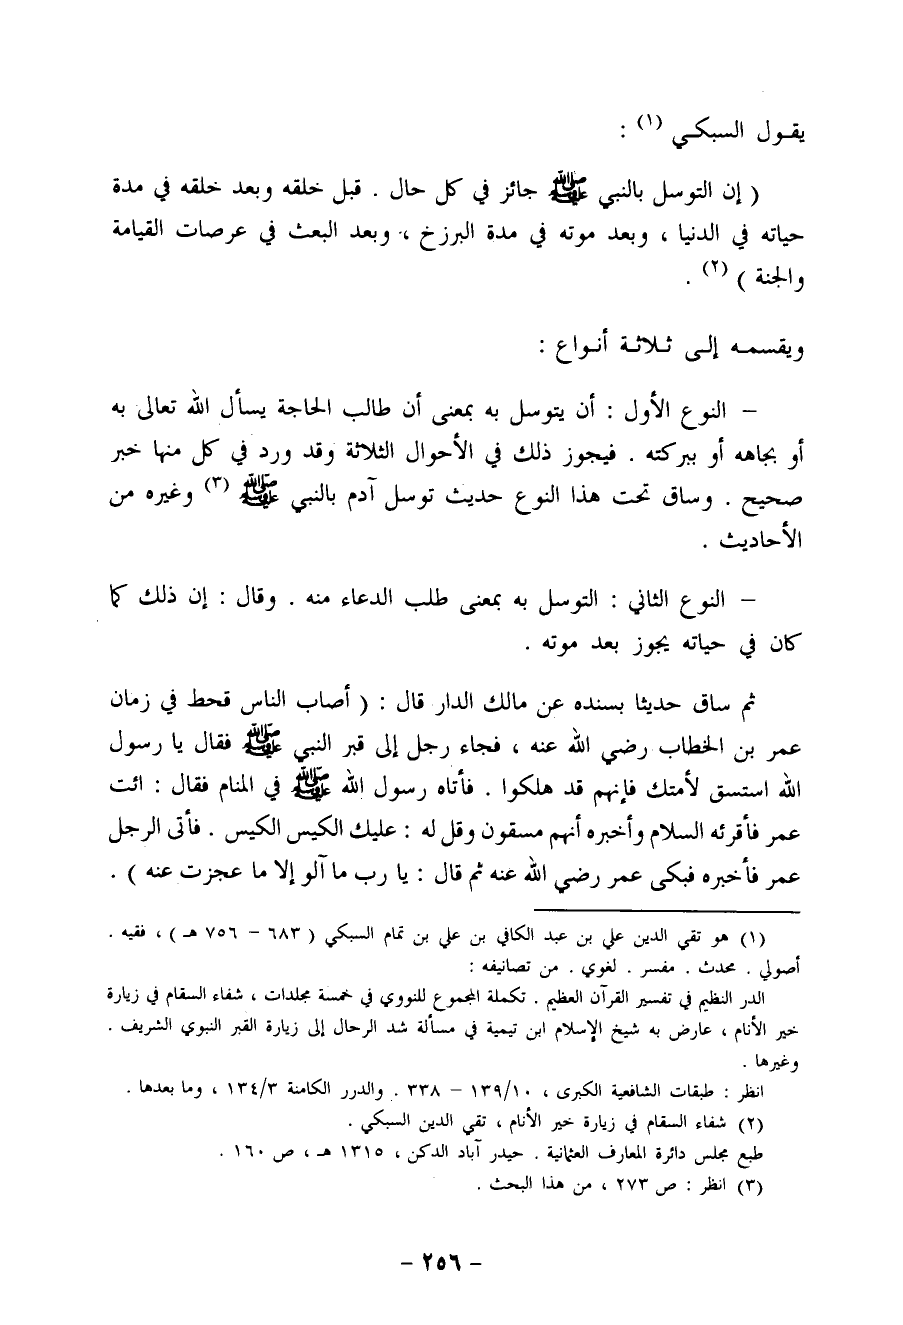 يقول السبكي (١) :
( إن التوسل بالنبي ﷺ جائز في كل حال . قبل خلقه وبعد خلقه في مدة
حياته في الدنيا ، وبعد موته في مدة البرزخ ، وبعد البعث في عرصات القيامة
والجنة ) (٢) .
ويقسمه إلى ثلاثة أنواع :
– النوع الأول : أن يتوسل به بمعنى أن طالب الحاجة يسأل الله تعالى به
أو بجاهه أو ببركته . فيجوز ذلك في الأحوال الثلاثة وقد ورد في كل منها خبر
صحيح . وساق تحت هذا النوع حديث توسل آدم بالنبي ﷺ (٣) وغيره من
الأحاديث .
– النوع الثاني : التوسل به بمعنى طلب الدعاء منه . وقال : إن ذلك كما
كان في حياته يجوز بعد موته .
ثم ساق حديثا بسنده عن مالك الدار قال : ( أصاب الناس قحط في زمان
عمر بن الخطاب رضي الله عنه ، فجاء رجل إلى قبر النبي ﷺ فقال يا رسول
الله استسق لأمتك فإنهم قد هلكوا . فأتاه رسول الله ﷺ في المنام فقال : ائت
عمر فأقرئه السلام وأخبره أنهم مسقون وقل له : عليك الكيس الكيس . فأتى الرجل
عمر فأخبره فبكى عمر رضي الله عنه ثم قال : يا رب ما آلو إلا ما عجزت عنه ) .
(١) هو تقي الدين علي بن عبد الكافي بن علي بن تمام السبكي ( ٦٨٣ – ٧٥٦ هـ ) ، فقيه .
أصولي . محدث . مفسر . لغوي . من تصانيفه :
الدر النظيم في تفسير القرآن العظيم . تكملة المجموع للنووي في خمسة مجلدات ، شفاء السقام في زيارة
خير الأنام ، عارض به شيخ الإسلام ابن تيمية في مسألة شد الرحال إلى زيارة القبر النبوي الشريف .
وغيرها .
انظر : طبقات الشافعية الكبرى ، ١٣٩/١٠ – ٣٣٨ . والدرر الكامنة ١٣٤/٣ ، وما بعدها .
(٢) شفاء السقام في زيارة خير الأنام ، تقي الدين السبكي .
طبع مجلس دائرة المعارف العثمانية . حيدر آباد الدكن ، ١٣١٥ هـ ، ص ١٦٠ .
(٣) انظر : ص ٢٧٣ ، من هذا البحث .
- ٢٥٦ -